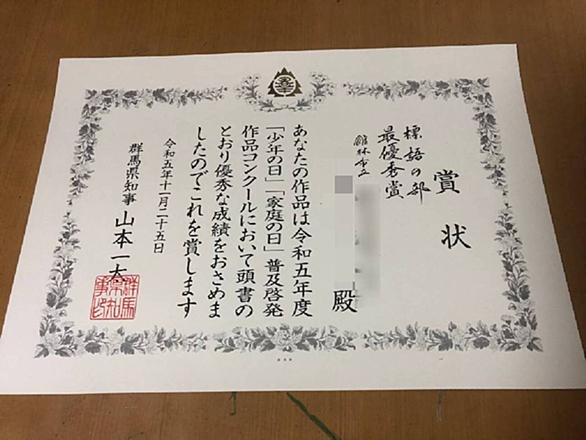 賞状
標語の部
最優秀賞
館林市立
殿
あなたの作品は令和五年度
「少年の日」「家庭の日」普及啓発
作品コンクールにおいて頭書の
とおり優秀な成績をおさめま
したのでこれを賞します
令和五年十一月二十五日
群馬県知事 山本一太
群馬県知事印